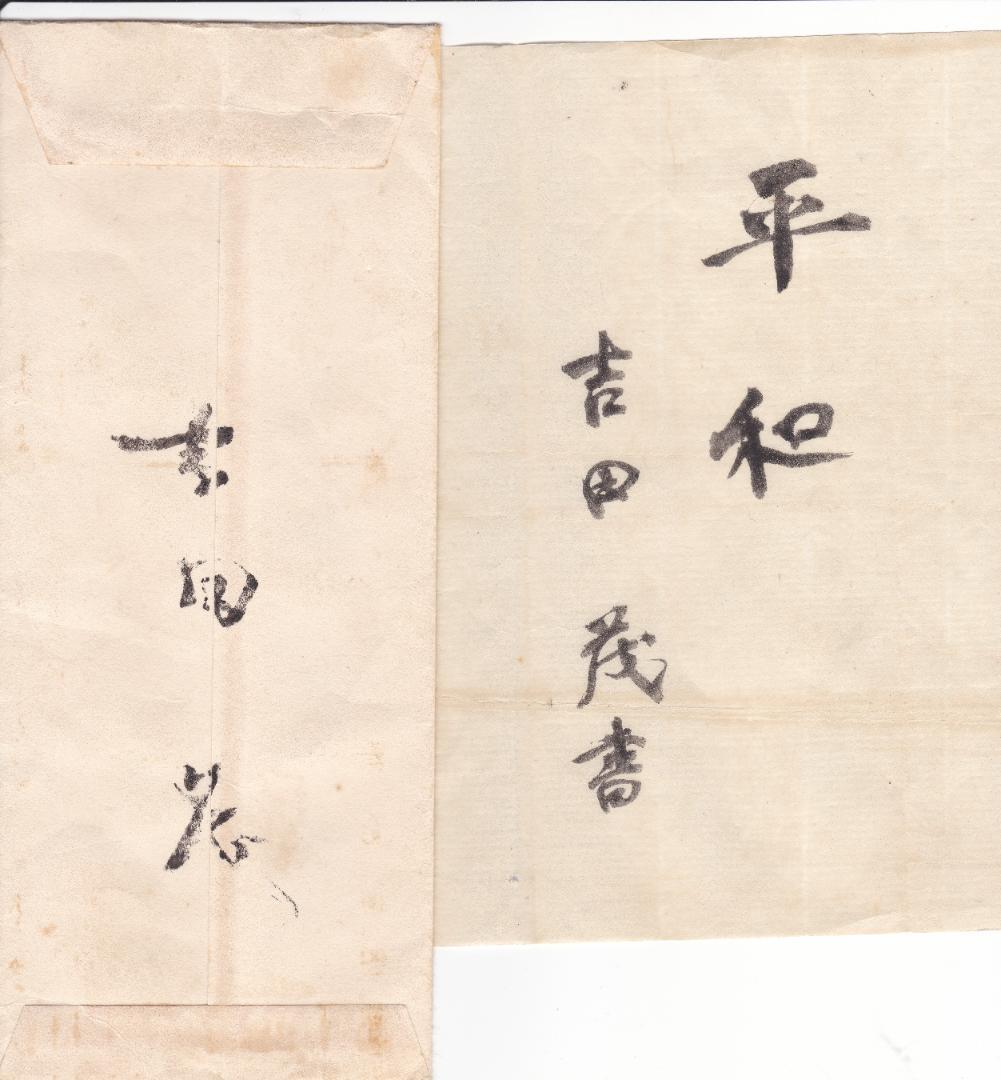 平和
吉田茂書
吉田茂